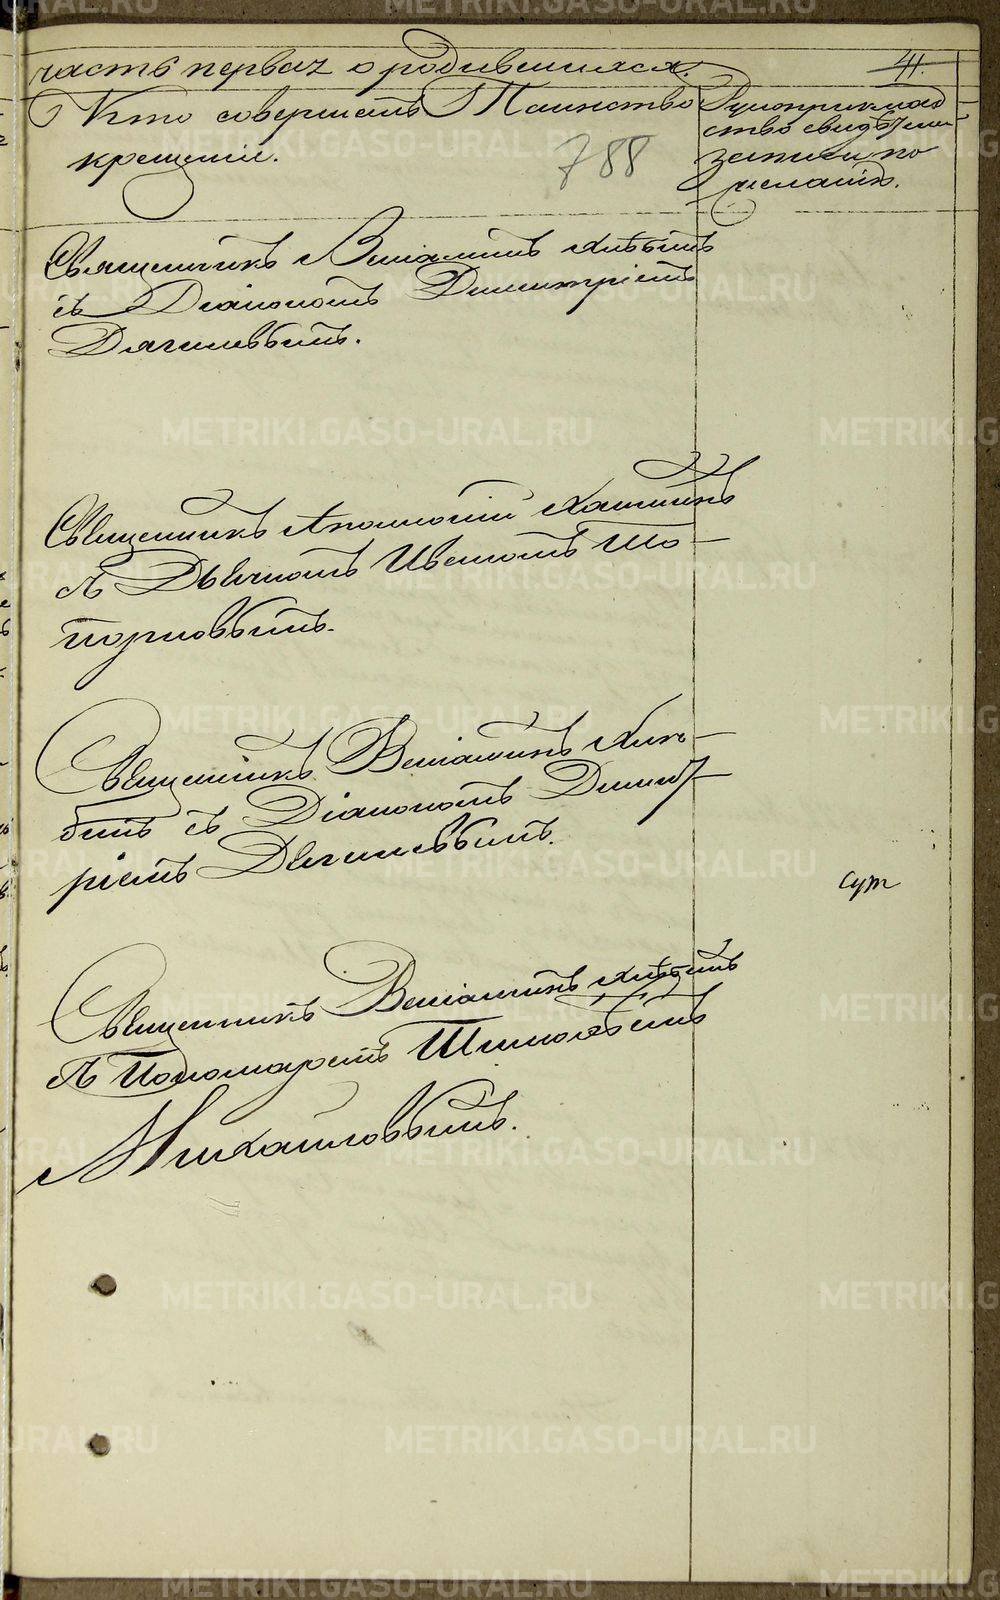 часть первая о родившихся.
41.
Кто совершалъ Таинство
крещенія.
788
Рукоприклад
ство свидѣтелей
записи по
желанію.
Священникъ Веніаминъ Хлѣбинъ
съ Діакономъ Димитріемъ
Дягилевымъ.
Священникъ Аполлоній
съ Дьячкомъ Иваномъ То-
порковымъ.
Священникъ Веніаминъ Хлѣ-
бинъ съ Діакономъ Димит-
ріемъ Дягилевымъ.
сут
Священникъ Веніаминъ Хлѣбинъ
съ Пономаремъ
Михайловымъ.
METRIKI.GASO-URAL.RU